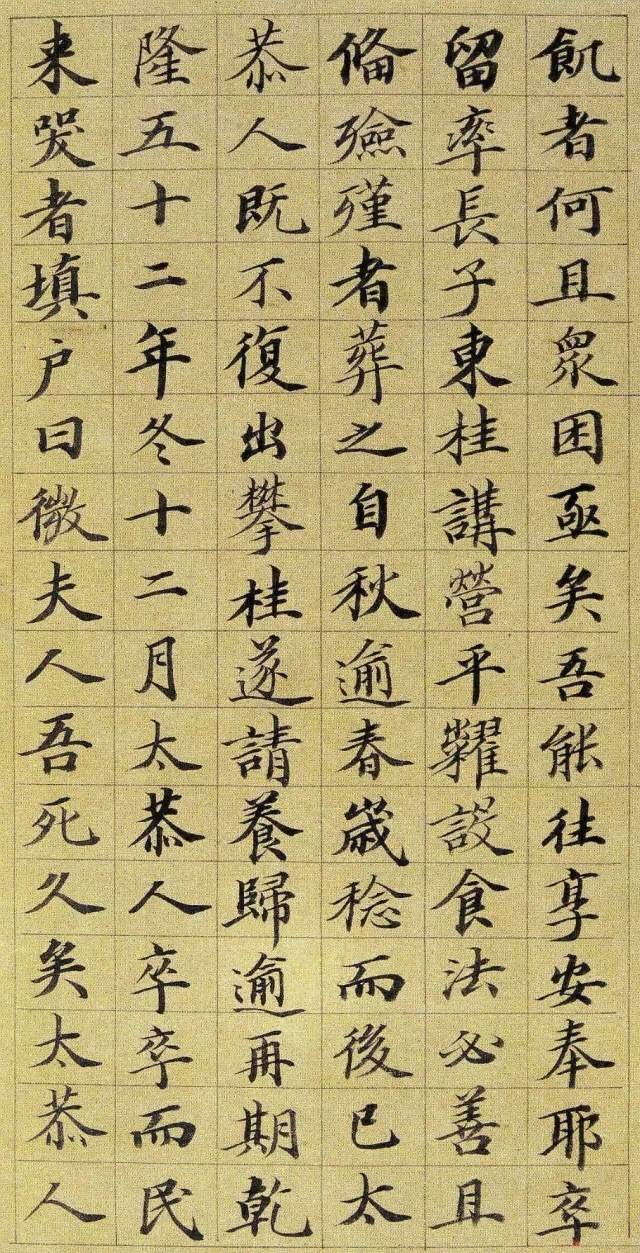 飢者何且衆困亟矣吾能往享安奉耶卒
留率長子東桂講營平糶設食法必善且
偹殮殣者葬之自秋逾春歲稔而後已太
恭人既不復出攀桂遂請養歸逾再期乾
隆五十二年冬十二月太恭人卒卒而民
来哭者填户曰微夫人吾死久矣太恭人